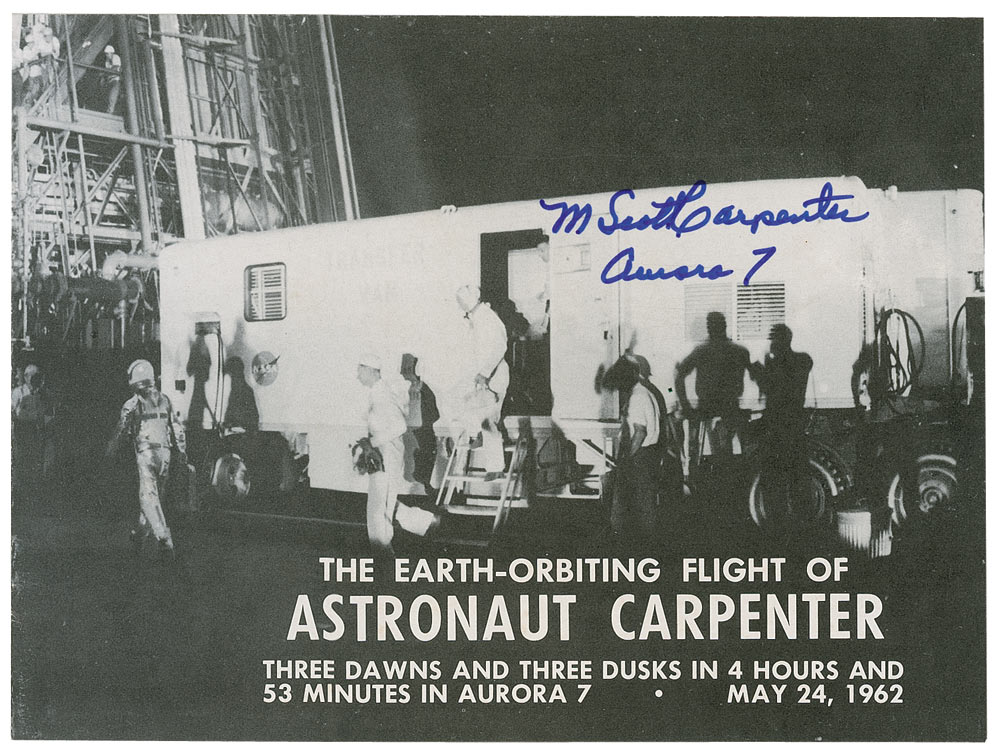 M Scott Carpenter
Aurora 7
NASA
THE EARTH-ORBITING FLIGHT OF
ASTRONAUT CARPENTER
THREE DAWNS AND THREE DUSKS IN 4 HOURS AND
53 MINUTES IN AURORA 7 • MAY 24, 1962